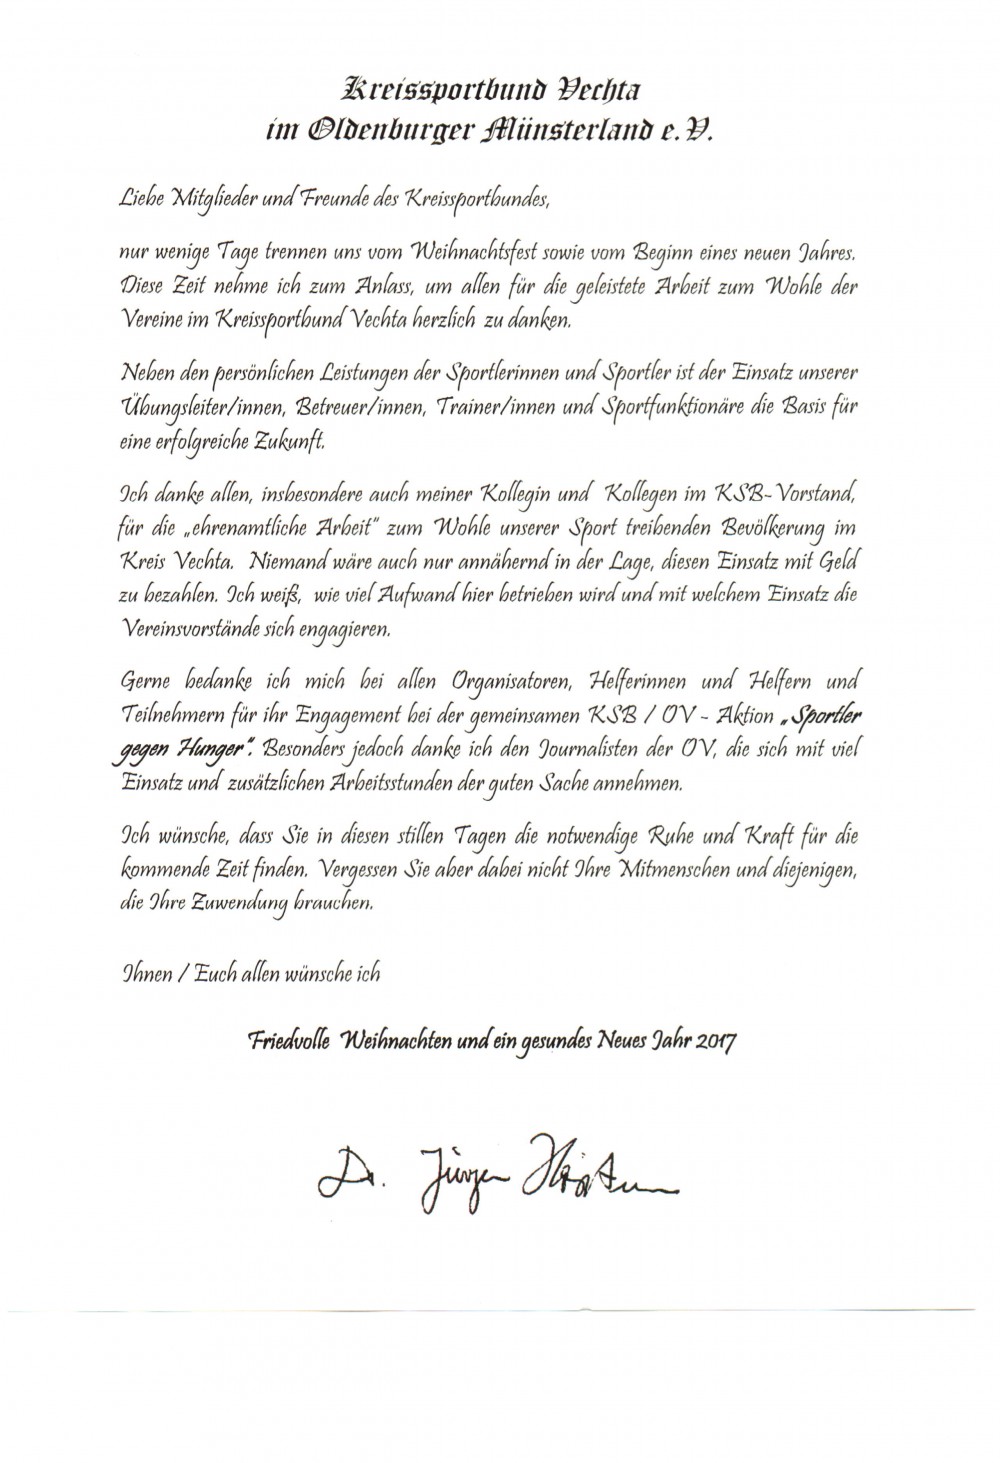 Kreissportbund Vechta
im Oldenburger Münsterland e.V.
Liebe Mitglieder und Freunde des Kreissportbundes,
nur wenige Tage trennen uns vom Weihnachtsfest sowie vom Beginn eines neuen Jahres.
Diese Zeit nehme ich zum Anlass, um allen für die geleistete Arbeit zum Wohle der
Vereine im Kreissportbund Vechta herzlich zu danken.
Neben den persönlichen Leistungen der Sportlerinnen und Sportler ist der Einsatz unserer
Übungsleiter/innen, Betreuer/innen, Trainer/innen und Sportfunktionäre die Basis für
eine erfolgreiche Zukunft.
Ich danke allen, insbesondere auch meiner Kollegin und Kollegen im KSB-Vorstand,
für die „ehrenamtliche Arbeit“ zum Wohle unserer Sport treibenden Bevölkerung im
Kreis Vechta. Niemand wäre auch nur annähernd in der Lage, diesen Einsatz mit Geld
zu bezahlen. Ich weiß, wie viel Aufwand hier betrieben wird und mit welchem Einsatz die
Vereinsvorstände sich engagieren.
Gerne bedanke ich mich bei allen Organisatoren, Helferinnen und Helfern und
Teilnehmern für ihr Engagement bei der gemeinsamen KSB / OV - Aktion „Sportler
gegen Hunger“. Besonders jedoch danke ich den Journalisten der OV, die sich mit viel
Einsatz und zusätzlichen Arbeitsstunden der guten Sache annehmen.
Ich wünsche, dass Sie in diesen stillen Tagen die notwendige Ruhe und Kraft für die
kommende Zeit finden. Vergessen Sie aber dabei nicht Ihre Mitmenschen und diejenigen,
die Ihre Zuwendung brauchen.
Ihnen / Euch allen wünsche ich
Friedvolle Weihnachten und ein gesundes Neues Jahr 2017
Dr. Jürgen